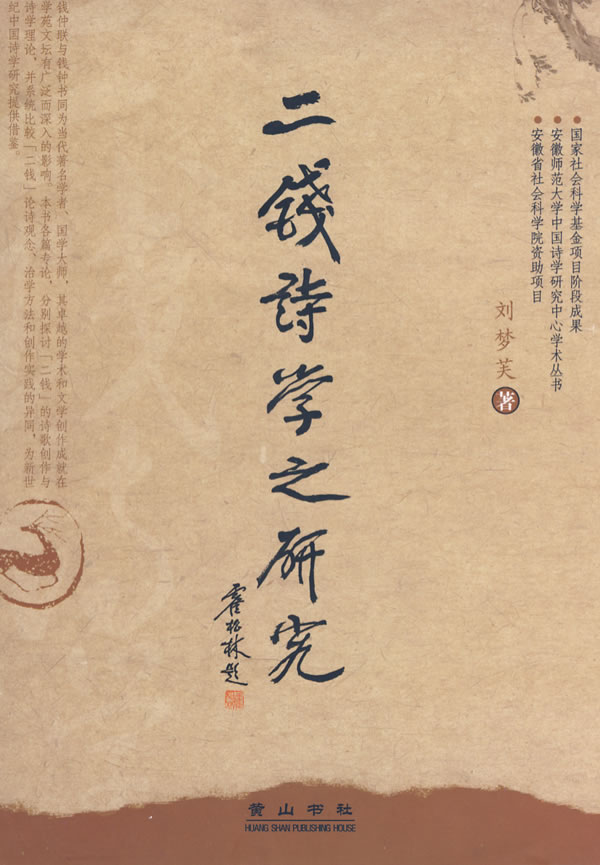 国家社会科学基金项目阶段成果
安徽师范大学中国诗学研究中心学术丛书
安徽省社会科学院资助项目
刘梦芙 著
二錢詩学之研究
霍松林题
钱仲联与钱钟书同为当代著名学者、国学大师，其卓越的学术和文学创作成就在
学苑文坛有广泛而深入的影响。本书各篇专论，分别探讨「二钱」的诗歌创作与
诗学理论，并系统比较「二钱」论诗观念、治学方法和创作实践的异同，为新世
纪中国诗学研究提供借鉴。
黄山书社
HUANG SHAN PUBLISHING HOUSE